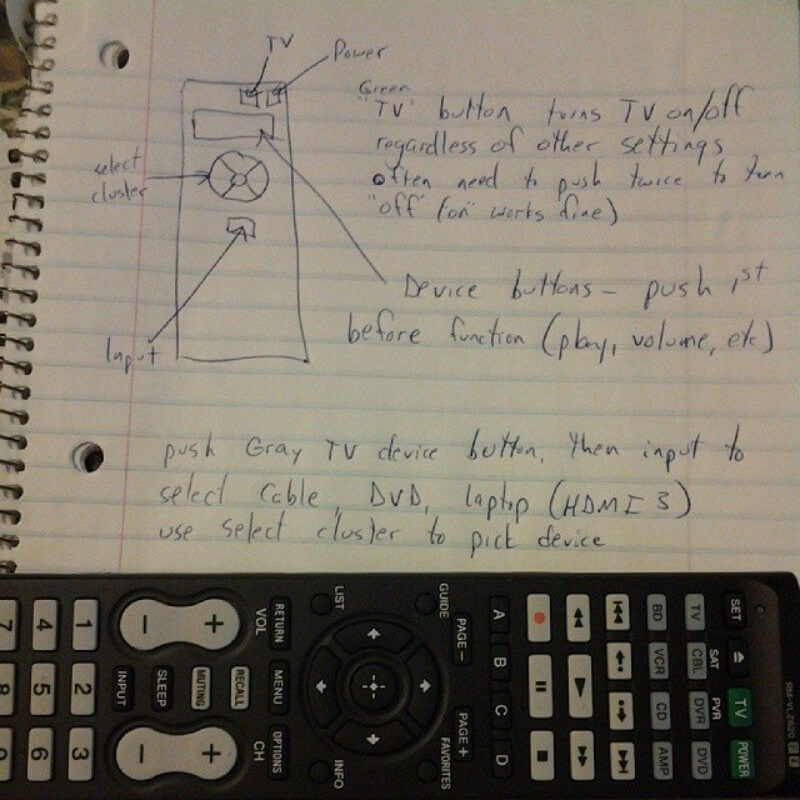 TV
Power
Green
"TV" button turns TV on/off
regardless of other settings
often need to push twice to turn
"off" (on" works fine)
select
cluster
Device buttons - push 1st
before function (play, volume, etc)
Input
push Gray TV device button, then input to
select Cable, DVD, laptop (HDMI 3)
use select cluster to pick device
RM-VLZ620
SET
TV
POWER
SAT
PVR
TV
CBL
DVR
DVD
BD
VCR
CD
AMP
A
B
C
D
GUIDE
PAGE -
PAGE +
FAVORITES
LIST
INFO
RETURN
MENU
OPTIONS
VOL
RECALL
CH
MUTING
SLEEP
INPUT
+
-
+
-
1
2
3
4
5
6
7
8
9